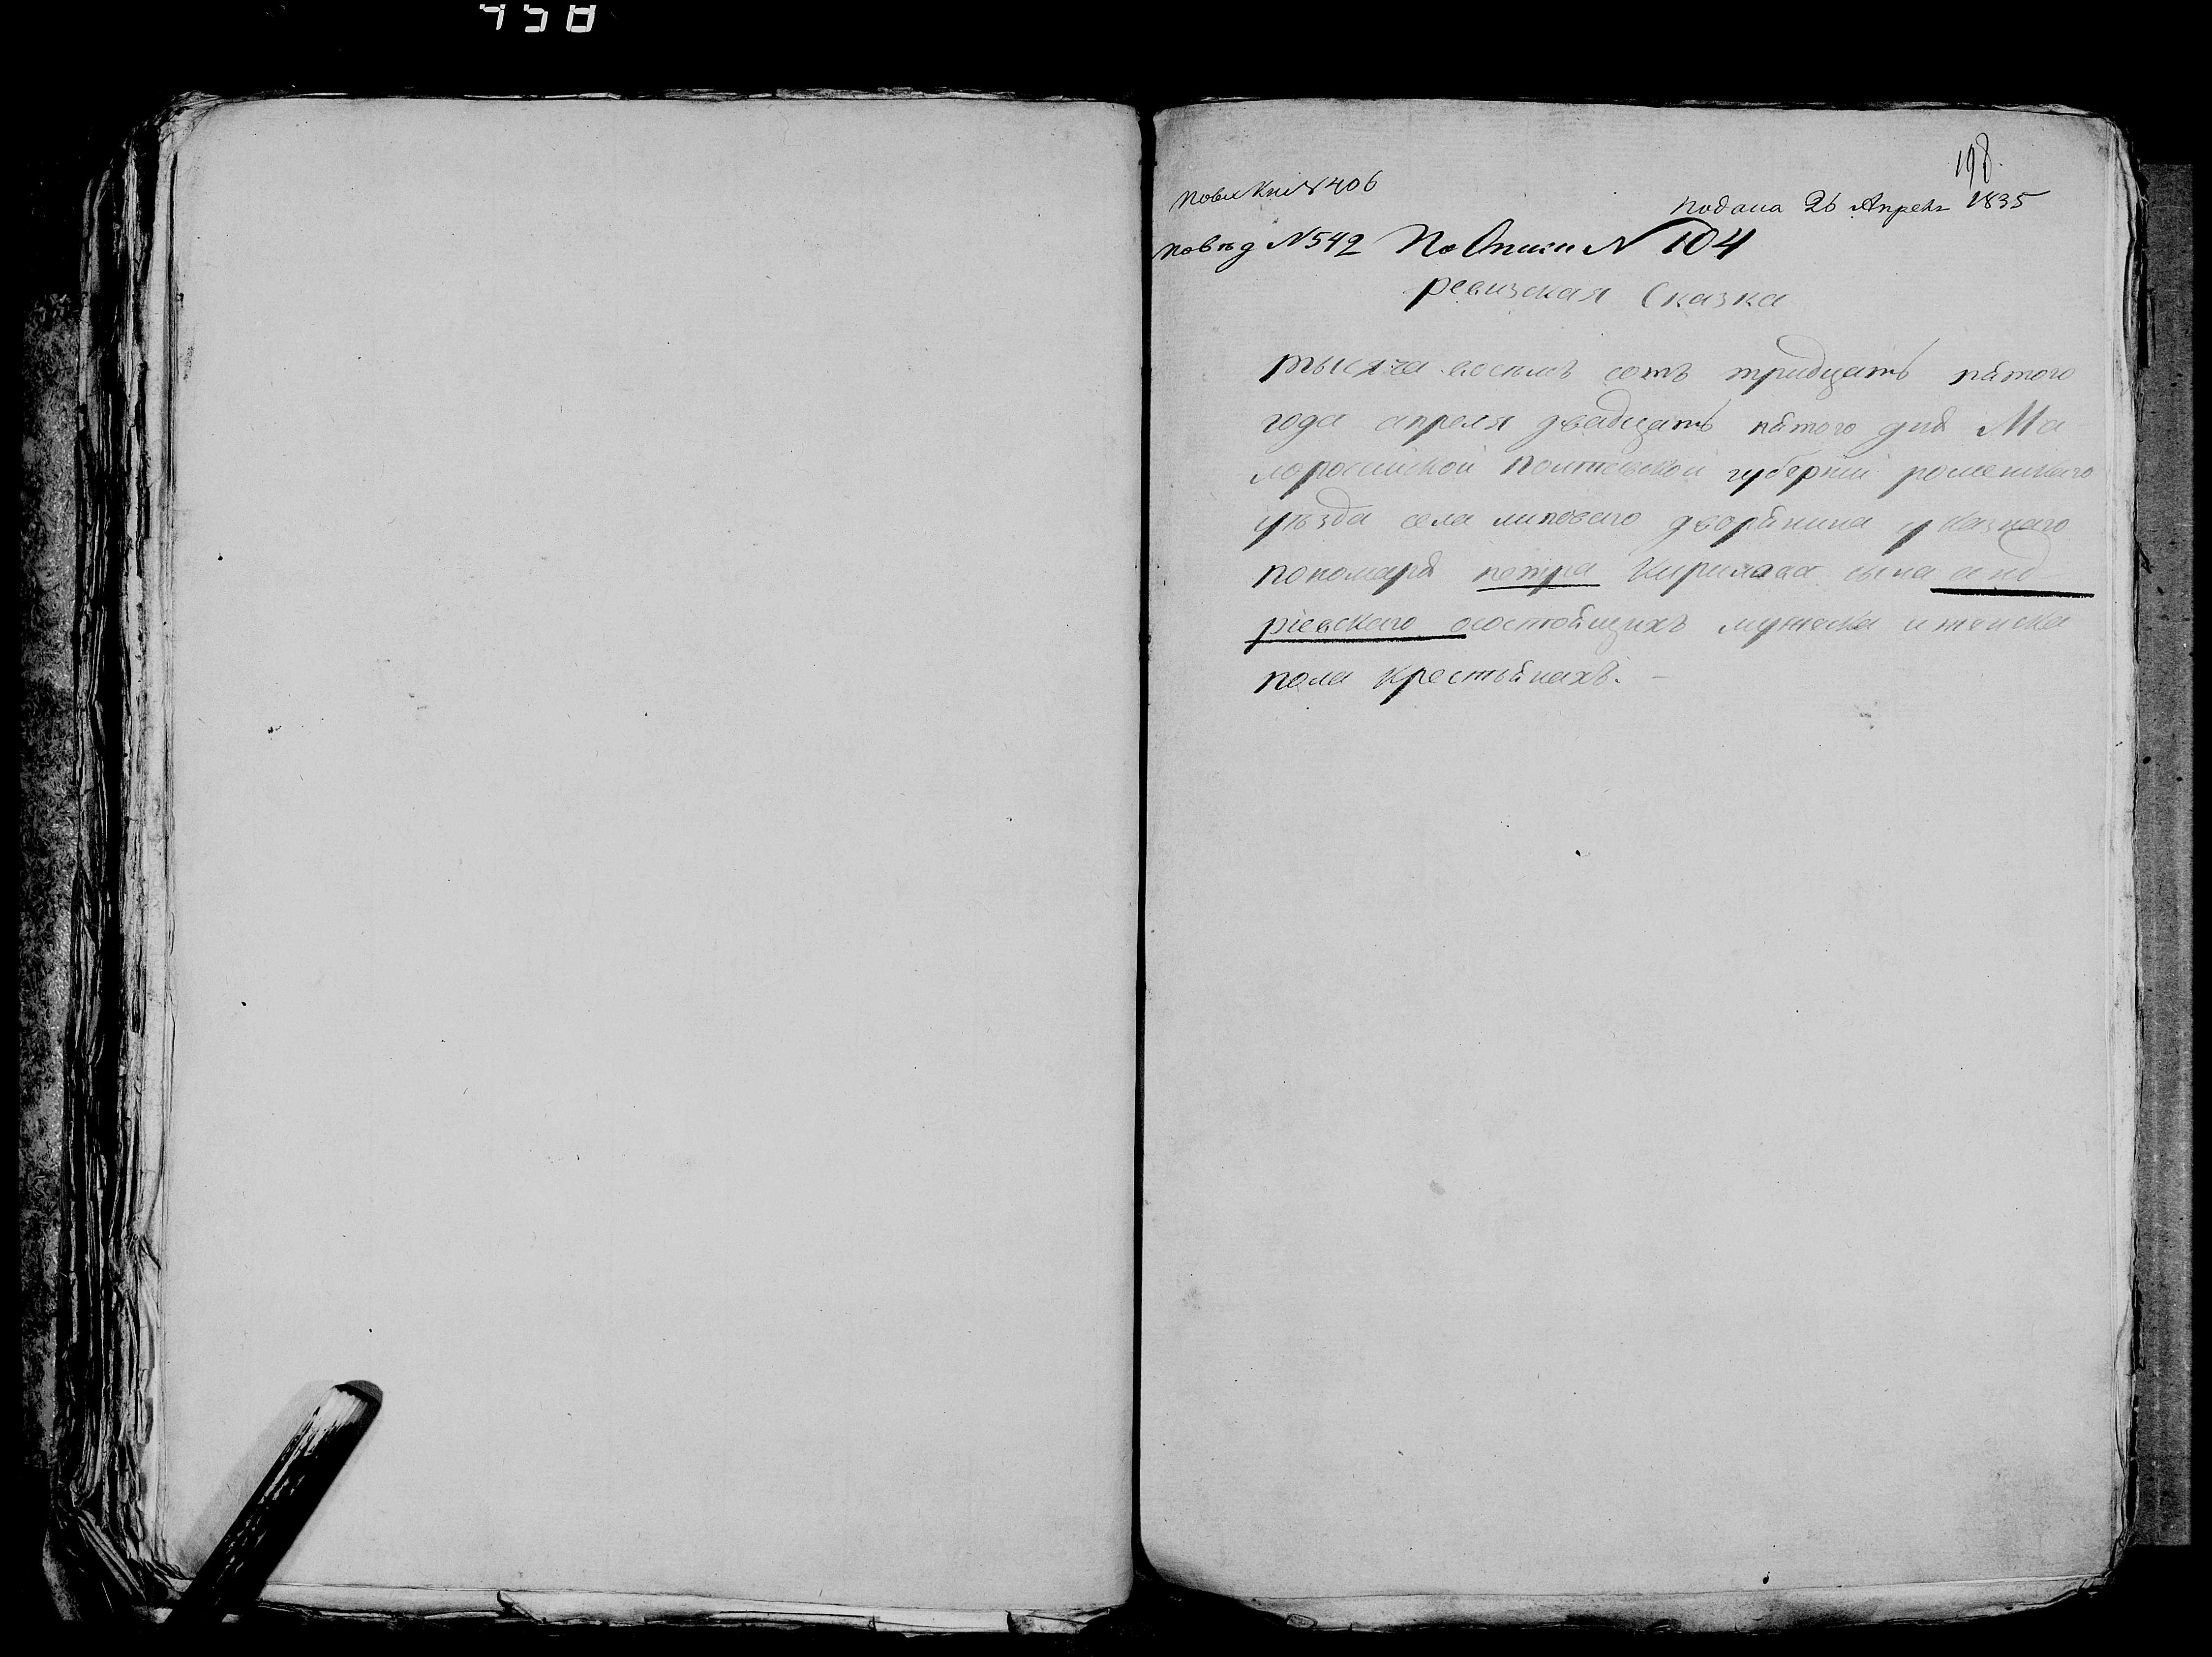 458
198.
По вх Кни № 406
подана 26 Апреля 1835
По вѣд № 542 По Описи № 104
ревизская Сказка
тысяча восемъ сотъ тридцать пятого
года апреля двадцать пятого дня Ма
лоросийской полтавской губернии роменского
уѣзда села липового дворянина указного
пономаря петра Кирилова сына анд
риевского осостоящихъ мужеска и женска
пола крестьянахъ.